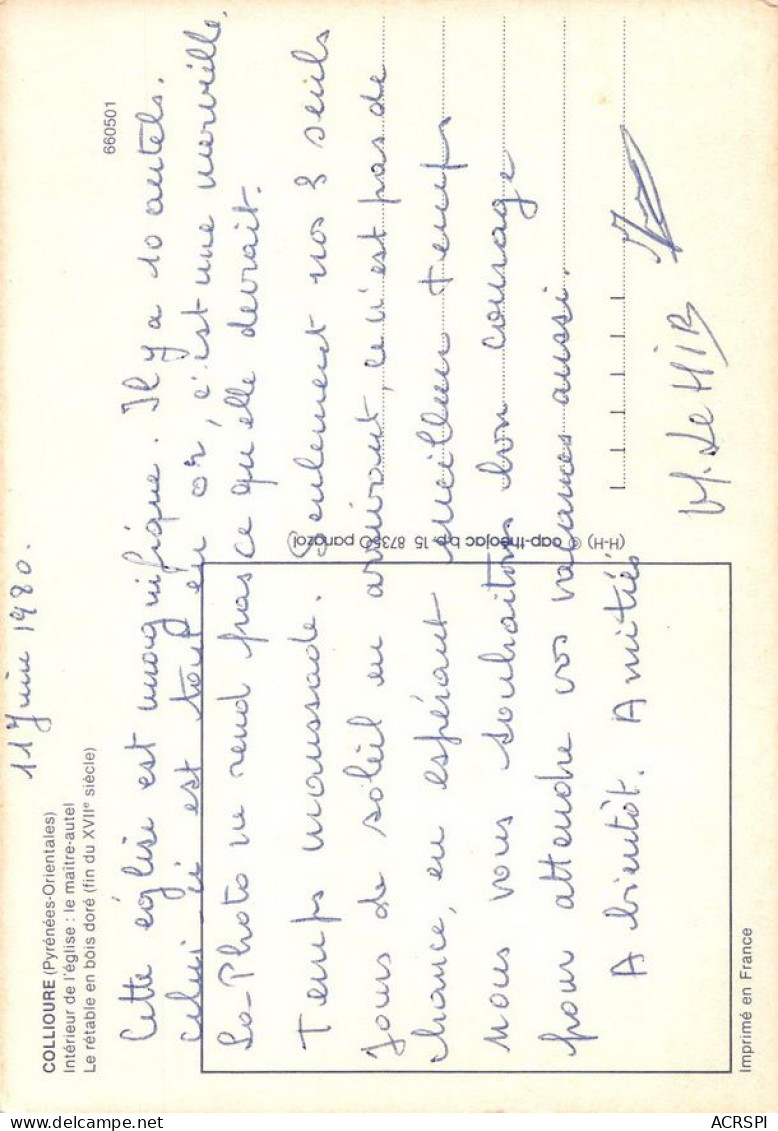 11 Juin 1980.
COLLIOURE (Pyrénées-Orientales)
Intérieur de l'église : le maître-autel
Le rétable en bois doré (fin du XVIIe siècle)
660501
Cette église est magnifique. Il y a 10 autels.
celui-ci est tout en or, c'est une merveille,
La Photo ne rend pas ce qu'elle devrait.
Temps maussade. Seulement nos 3 seuls
Jours de soleil en arrivant, ce n'est pas de
chance, en espérant meilleur temps
nous vous souhaitons bon courage
pour attendre vos vacances aussi.
A bientôt. Amitiés
M. Le Hir
(H-H) © cap-théojac b.p. 15 87350 panazol
Imprimé en France
ACRSPI